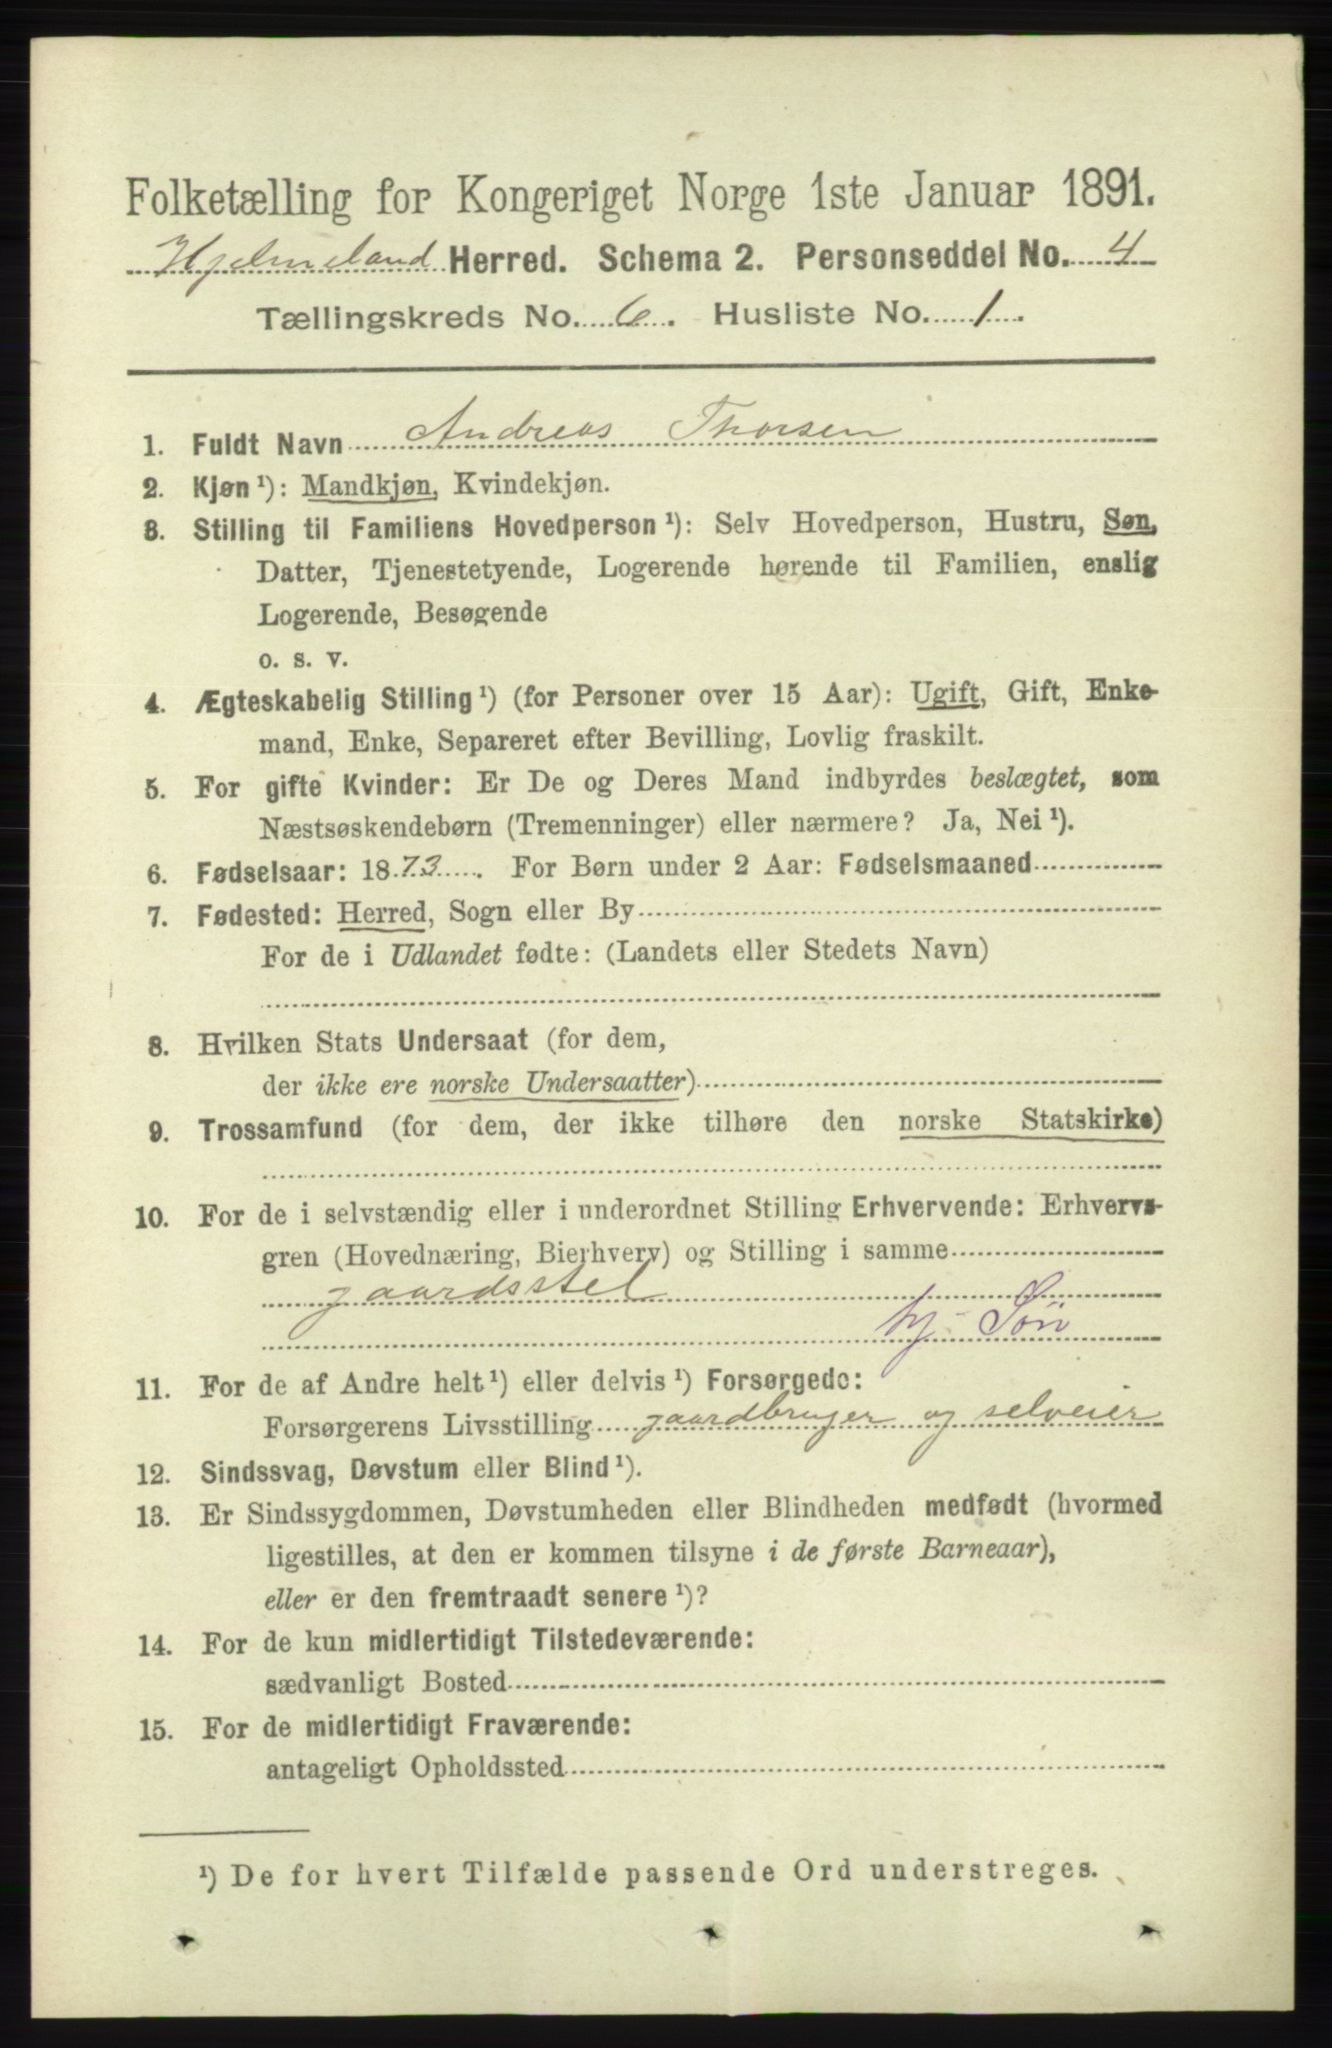 Folketælling for Kongeriget Norge 1ste Januar 1891.
Hjelmeland Herred. Schema 2. Personseddel No. 4
Tællingskreds No. 6. Husliste No. 1.
1. Fuldt Navn Andreas Thorsen
2. Kjøn¹): Mandkjøn, Kvindekjøn.
3. Stilling til Familiens Hovedperson¹): Selv Hovedperson, Hustru, Søn,
Datter, Tjenestetyende, Logerende hørende til Familien, enslig
Logerende, Besøgende
o. s. v.
4. Ægteskabelig Stilling¹) (for Personer over 15 Aar): Ugift, Gift, Enke-
mand, Enke, Separeret efter Bevilling, Lovlig fraskilt.
5. For gifte Kvinder: Er De og Deres Mand indbyrdes beslægtet, som
Næstsøskendebørn (Tremenninger) eller nærmere? Ja, Nei¹).
6. Fødselsaar: 1873. For Børn under 2 Aar: Fødselsmaaned
7. Fødested: Herred, Sogn eller By
For de i Udlandet fødte: (Landets eller Stedets Navn)
8. Hvilken Stats Undersaat (for dem,
der ikke ere norske Undersaatter)
9. Trossamfund (for dem, der ikke tilhøre den norske Statskirke)
10. For de i selvstændig eller i underordnet Stilling Erhvervende: Erhvervs-
gren (Hovednæring, Bierhverv) og Stilling i samme
gaardsstel
hj. Søn
11. For de af Andre helt¹) eller delvis¹) Forsørgede:
Forsørgerens Livsstilling gaardbruger og selveier
12. Sindssvag, Døvstum eller Blind¹).
13. Er Sindssygdommen, Døvstumheden eller Blindheden medfødt (hvormed
ligestilles, at den er kommen tilsyne i de første Barneaar),
eller er den fremtraadt senere¹)?
14. For de kun midlertidigt Tilstedeværende:
sædvanligt Bosted
15. For de midlertidigt Fraværende:
antageligt Opholdssted
¹) De for hvert Tilfælde passende Ord understreges.